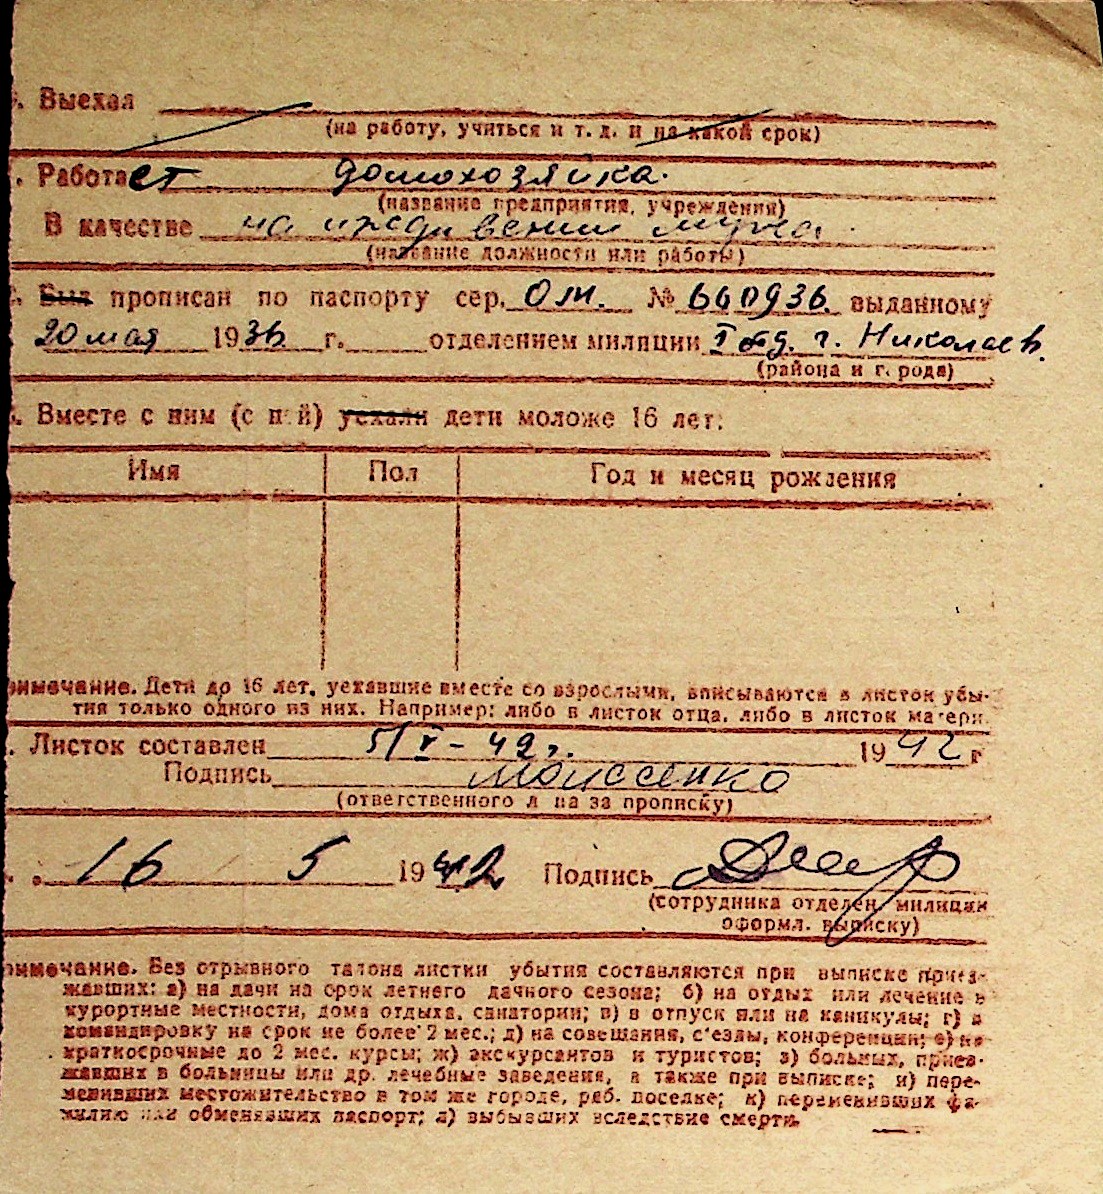 . Выехал
(на работу, учиться и т. д. и на какой срок)
. Работает домохозяйка.
(название предприятия, учреждения)
В качестве на иждивении мужа.
(название должности или работы)
. Был прописан по паспорту сер. О.М. № 660936 выданному
20 мая 1936 г. отделением милиции I отд. г. Николаев.
(района и г. рода)
. Вместе с ним (с н й) уехали дети моложе 16 лет:
Имя Пол Год и месяц рождения
имечание. Дети до 16 лет, уехавшие вместе со взрослыми, вписываются в листок убы-
тия только одного из них. Например: либо в листок отца, либо в листок матери.
. Листок составлен 5/V - 42 г. 1942 г
Подпись Моисеенко
(ответственного л ца за прописку)
. 16 5 1942 Подпись
(сотрудника отделен. милиции
оформл. выписку)
имечание. Без отрывного талона листки убытия составляются при выписке приез-
жавших: а) на дачи на срок летнего дачного сезона; б) на отдых или лечение в
курортные местности, дома отдыха, санатории; в) в отпуск или на каникулы; г) в
командировку на срок не более 2 мес.; д) на совещания, с'езды, конференции; е) на
краткосрочные до 2 мес. курсы; ж) экскурсантов и туристов; з) больных, приез-
жавших в больницы или др. лечебные заведения, а также при выписке; и) пере-
менивших местожительство в том же городе, раб. поселке; к) переменивших фа-
милию или обменявших паспорт; л) выбывших вследствие смерти.